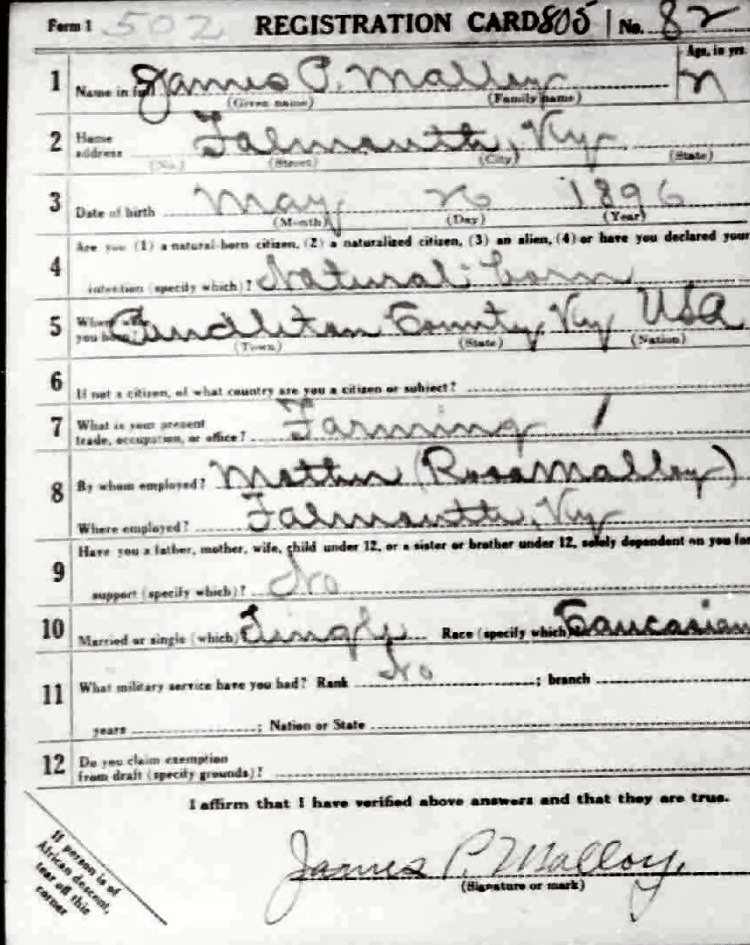 Form 1 502 REGISTRATION CARD 805 No. 82
Age, in yrs.
1 Name in full James P. Malloy 21
(Given name) (Family name)
2 Home address Falmouth, Ky.
(No.) (Street) (City) (State)
3 Date of birth May 26 1896
(Month) (Day) (Year)
Are you (1) a natural-born citizen, (2) a naturalized citizen, (3) an alien, (4) or have you declared your
4 intention (specify which)? Natural born
5 Where were you born? Pendleton County, Ky USA
(Town) (State) (Nation)
6 If not a citizen, of what country are you a citizen or subject?
7 What is your present trade, occupation, or office? Farming 1
8 By whom employed? Mother (Rosa Malloy)
Where employed? Falmouth, Ky
Have you a father, mother, wife, child under 12, or a sister or brother under 12, solely dependent on you for
9 support (specify which)? No
10 Married or single (which) Single Race (specify which) Caucasian
11 What military service have you had? Rank No ; branch
years ; Nation or State
12 Do you claim exemption
from draft (specify grounds)?
I affirm that I have verified above answers and that they are true.
James P. Malloy.
(Signature or mark)
If person is of
African descent,
tear off this
corner